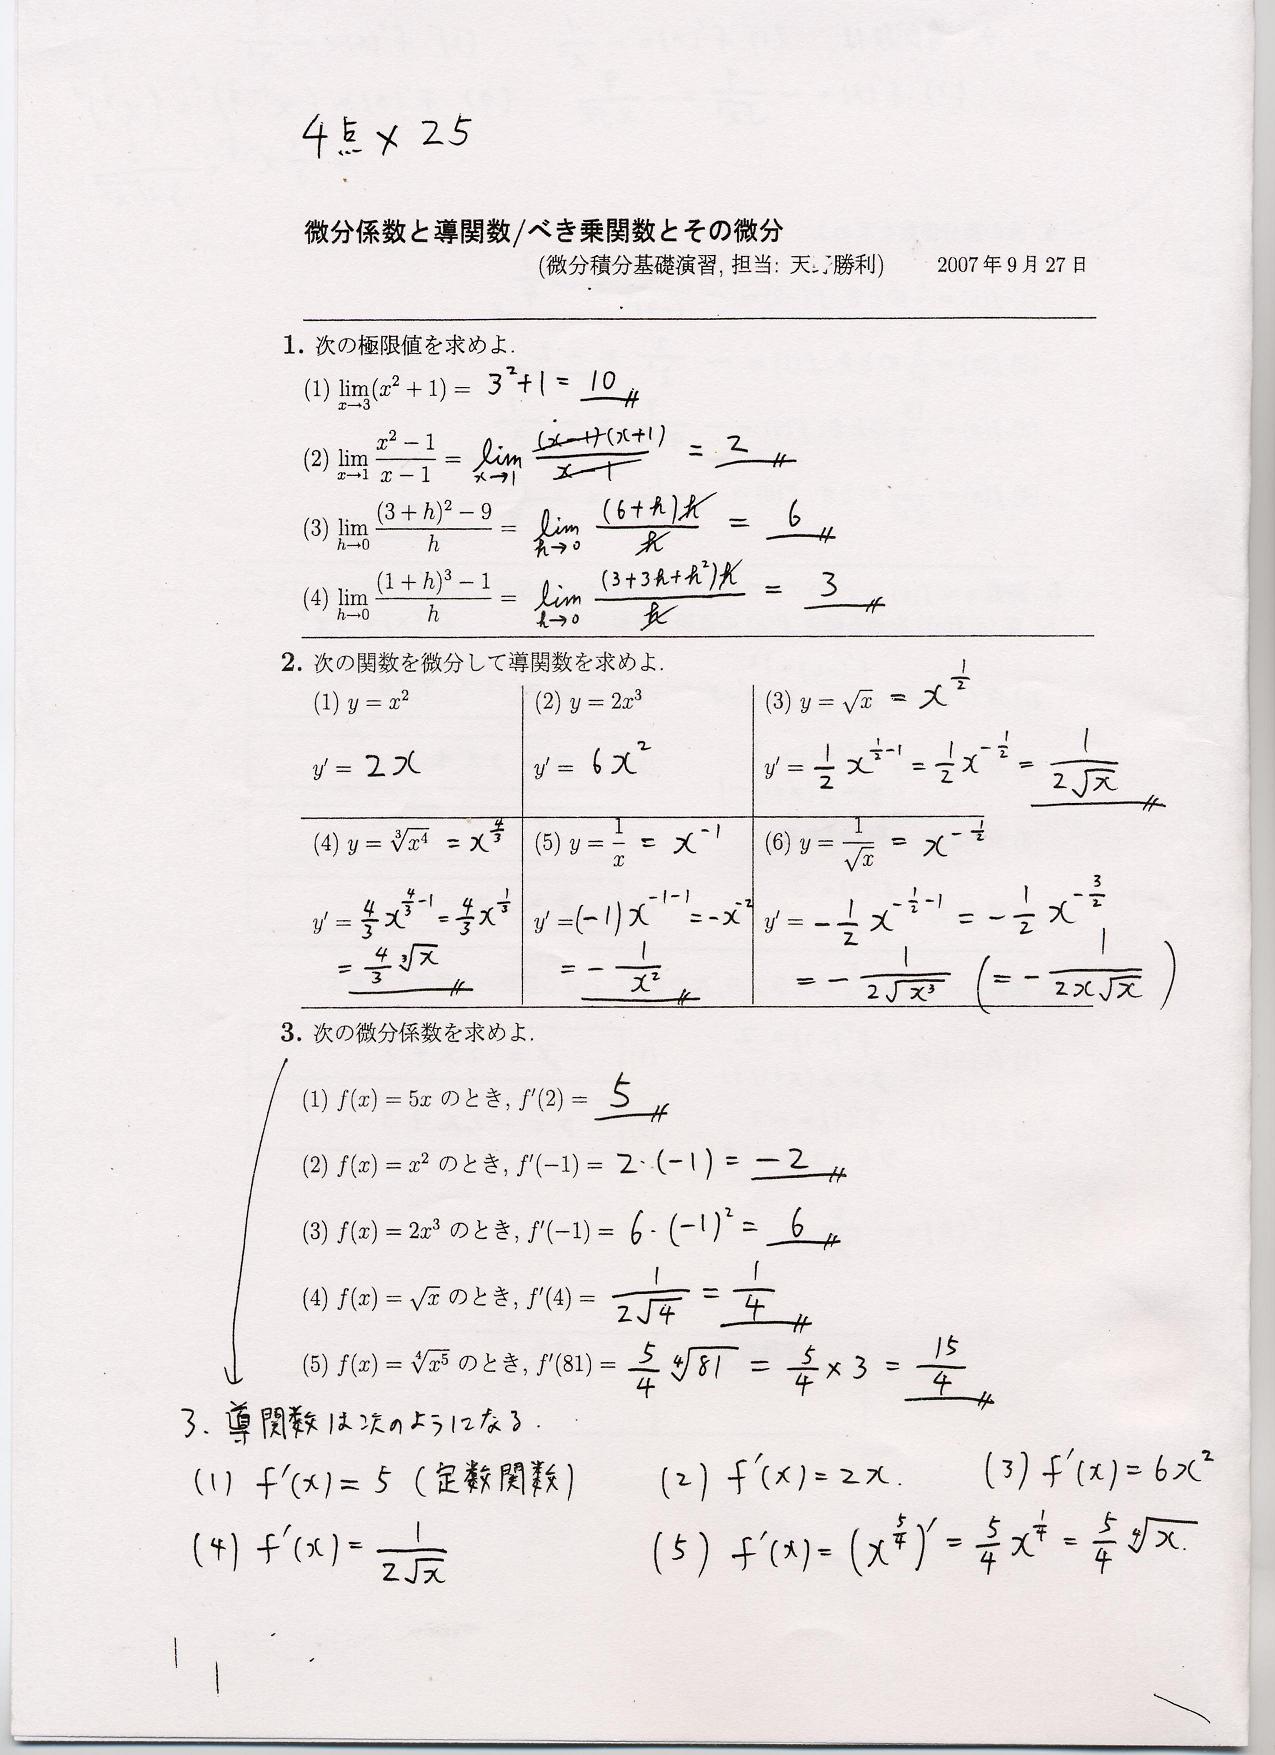 4点 × 25
微分係数と導関数/べき乗関数とその微分
(微分積分基礎演習, 担当: 天 勝利) 2007年9月27日
1. 次の極限値を求めよ.
(1) lim_{x→3} (x² + 1) = 3² + 1 = 10
(2) lim_{x→1} (x² − 1)/(x − 1) = lim_{x→1} (x−1)(x+1)/(x−1) = 2
(3) lim_{h→0} ((3 + h)² − 9)/h = lim_{h→0} (6+h)h/h = 6
(4) lim_{h→0} ((1 + h)³ − 1)/h = lim_{h→0} (3+3h+h²)h/h = 3
2. 次の関数を微分して導関数を求めよ.
(1) y = x²
y′ = 2x
(2) y = 2x³
y′ = 6x²
(3) y = √x = x^{1/2}
y′ = 1/2 x^{1/2 −1} = 1/2 x^{−1/2} = 1/(2√x)
(4) y = ∛(x⁴) = x^{4/3}
y′ = 4/3 x^{4/3 −1} = 4/3 x^{1/3}
= 4/3 ∛x
(5) y = 1/x = x^{−1}
y′ = (−1)x^{−1−1} = −x^{−2}
= − 1/x²
(6) y = 1/√x = x^{−1/2}
y′ = −1/2 x^{−1/2 −1} = −1/2 x^{−3/2}
= − 1/(2√(x³)) (= − 1/(2x√x))
3. 次の微分係数を求めよ.
(1) f(x) = 5x のとき, f′(2) = 5
(2) f(x) = x² のとき, f′(−1) = 2·(−1) = −2
(3) f(x) = 2x³ のとき, f′(−1) = 6·(−1)² = 6
(4) f(x) = √x のとき, f′(4) = 1/(2√4) = 1/4
(5) f(x) = ∜(x⁵) のとき, f′(81) = 5/4 ∜81 = 5/4 × 3 = 15/4
3. 導関数は次のようになる.
(1) f′(x) = 5 (定数関数) (2) f′(x) = 2x. (3) f′(x) = 6x²
(4) f′(x) = 1/(2√x) (5) f′(x) = (x^{5/4})′ = 5/4 x^{1/4} = 5/4 ∜x.